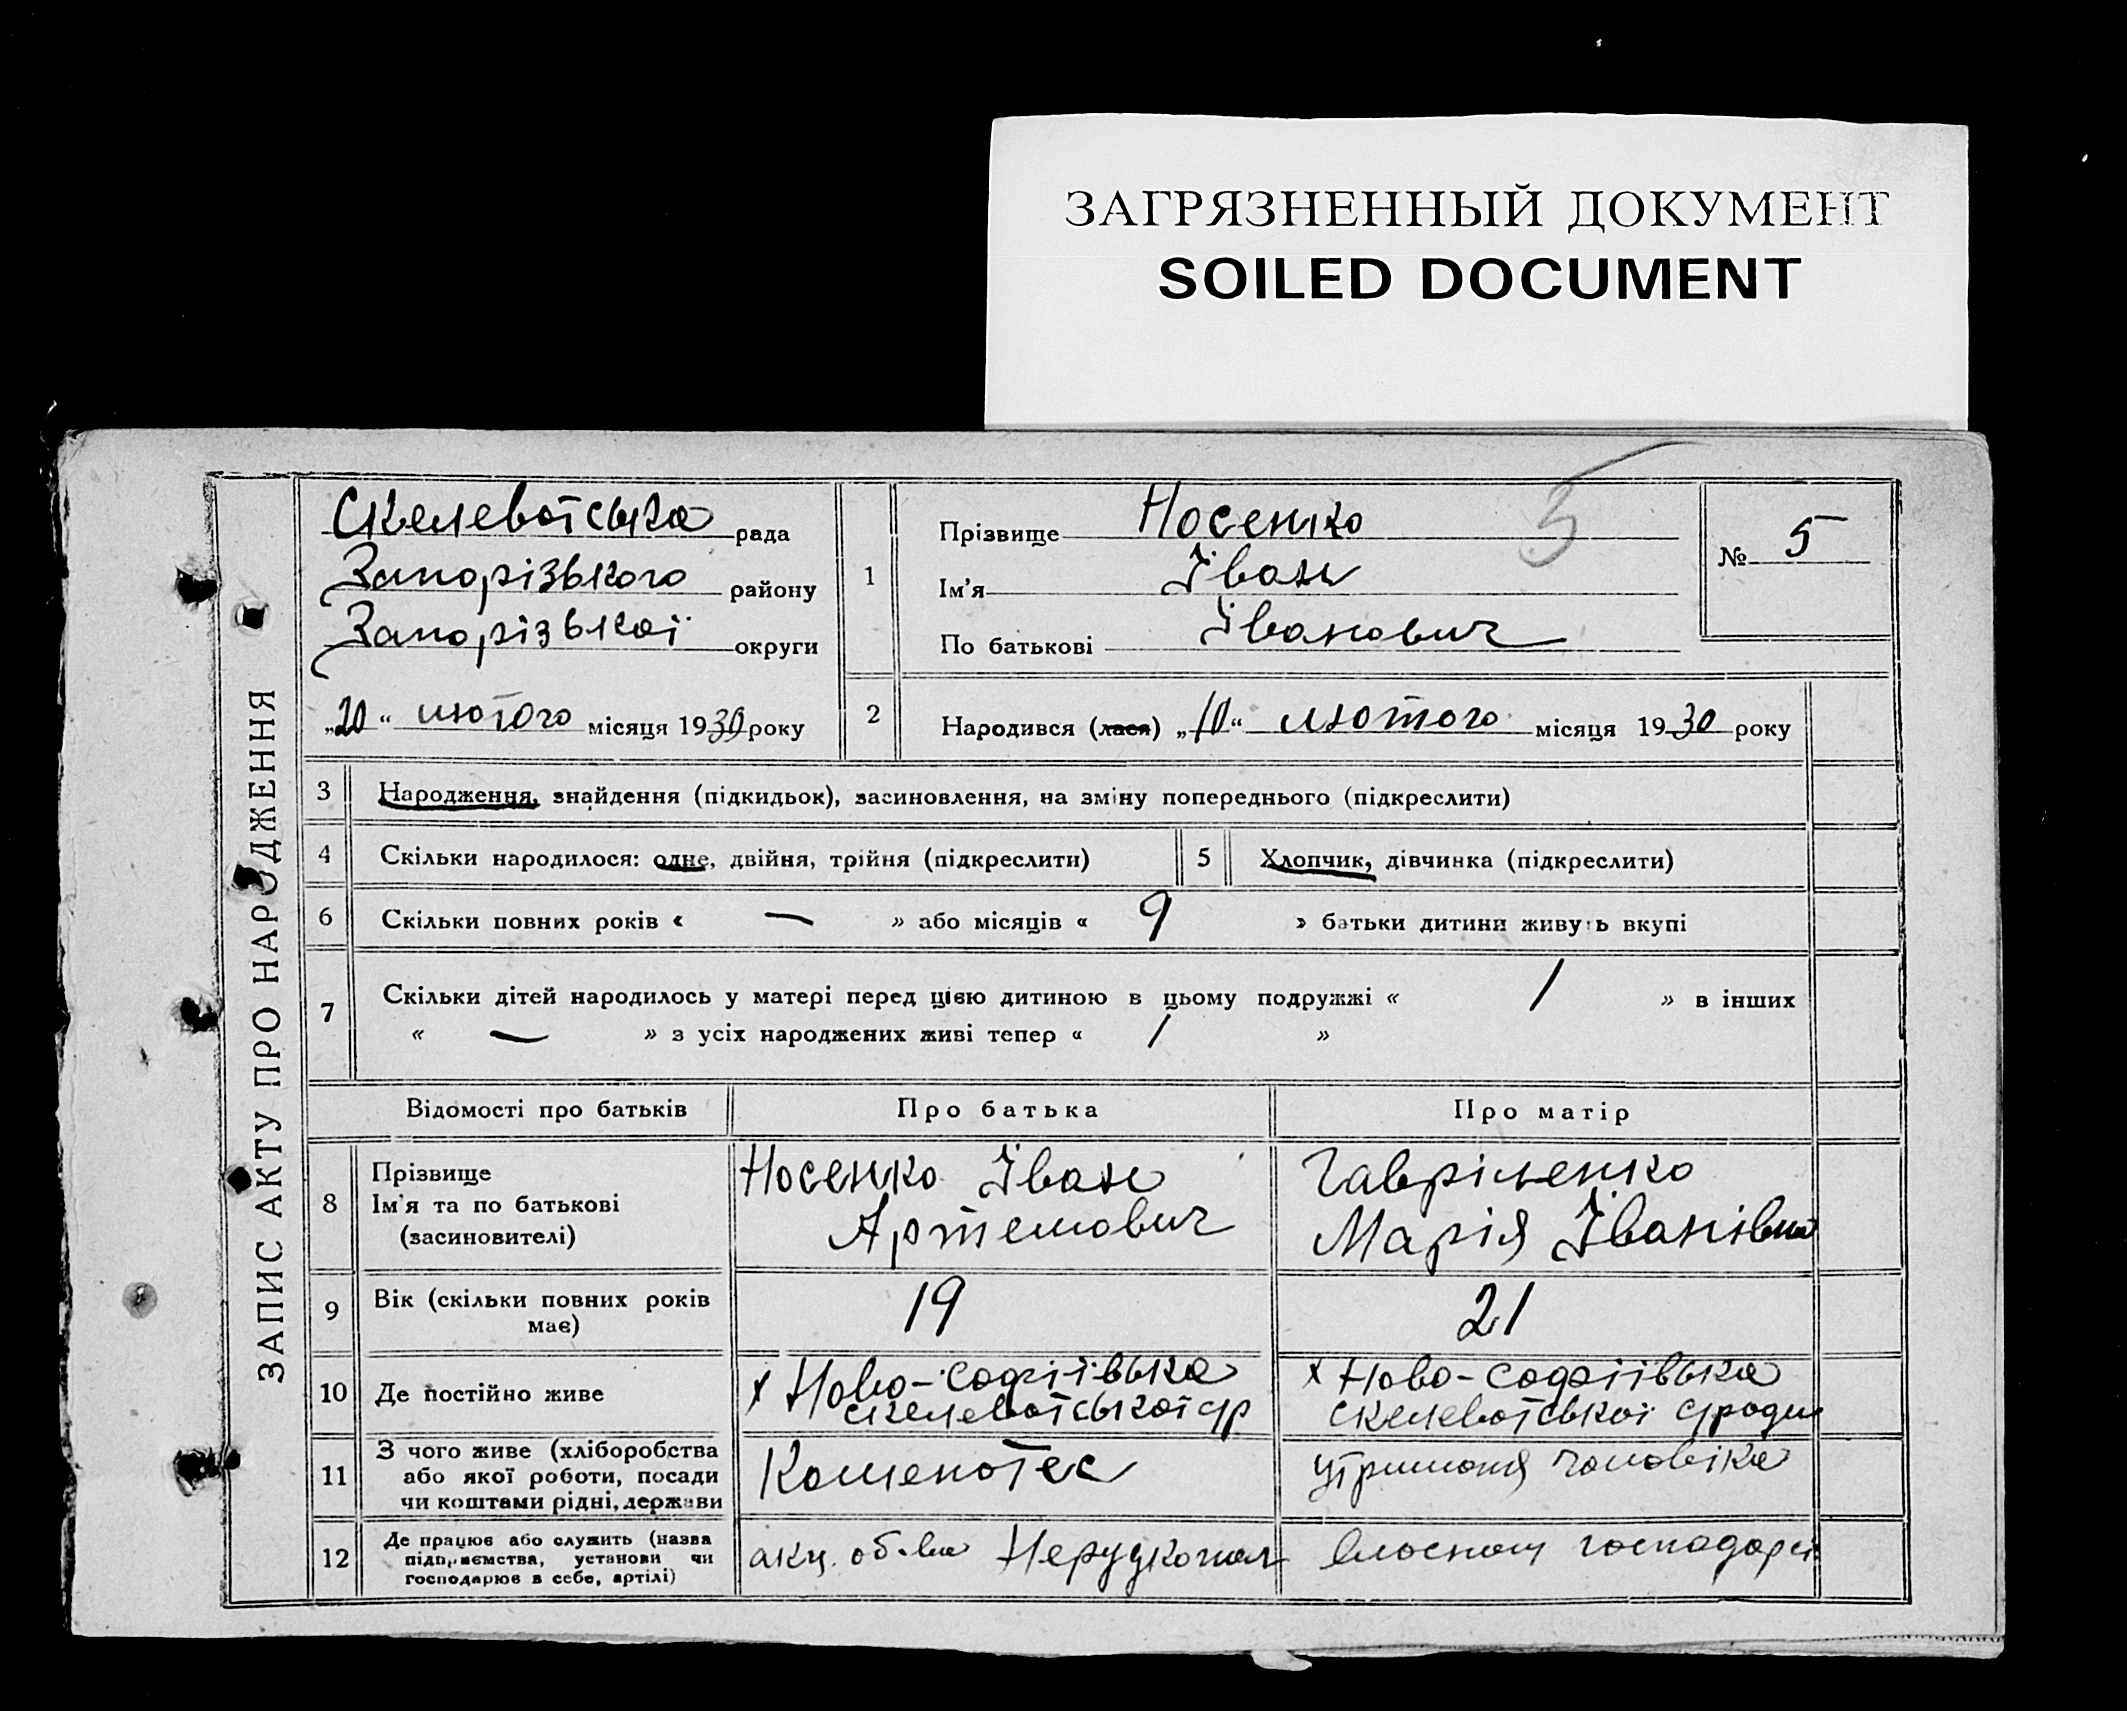 ЗАГРЯЗНЕННЫЙ ДОКУМЕНТ
SOILED DOCUMENT
5
ЗАПИС АКТУ ПРО НАРОДЖЕННЯ
Скелеватська рада
Запорізького району
Запорізької округи
„20“ лютого місяця 1930 року
1
Прізвище Носенко
Ім'я Іван
По батькові Іванович
№ 5
2 Народився (лася) „10“ лютого місяця 1930 року
3 Народження, знайдення (підкидьок), засиновлення, на зміну попереднього (підкреслити)
4 Скільки народилося: одне, двійня, трійня (підкреслити) 5 Хлопчик, дівчинка (підкреслити)
6 Скільки повних років « — » або місяців « 9 » батьки дитини живуть вкупі
7 Скільки дітей народилось у матері перед цією дитиною в цьому подружжі « 1 » в інших
« — » з усіх народжених живі тепер « 1 »
Відомості про батьків Про батька Про матір
8 Прізвище
Ім'я та по батькові
(засиновителі)
Носенко Іван
Артемович
Гавріленко
Марія Іванівна
9 Вік (скільки повних років
має)
19
21
10 Де постійно живе
х Ново-Софіївька
Скелеватської с/р
х Ново-Софіївька
Скелеватської с/ради
11 З чого живе (хліборобства
або якої роботи, посади
чи коштами рідні, держави
Каменотес
утриманя чоловіка
12 Де працює або служить (назва
підприємства, установи чи
господарює в себе, артілі)
акц. об-ва Нерудкопал
власному господарст